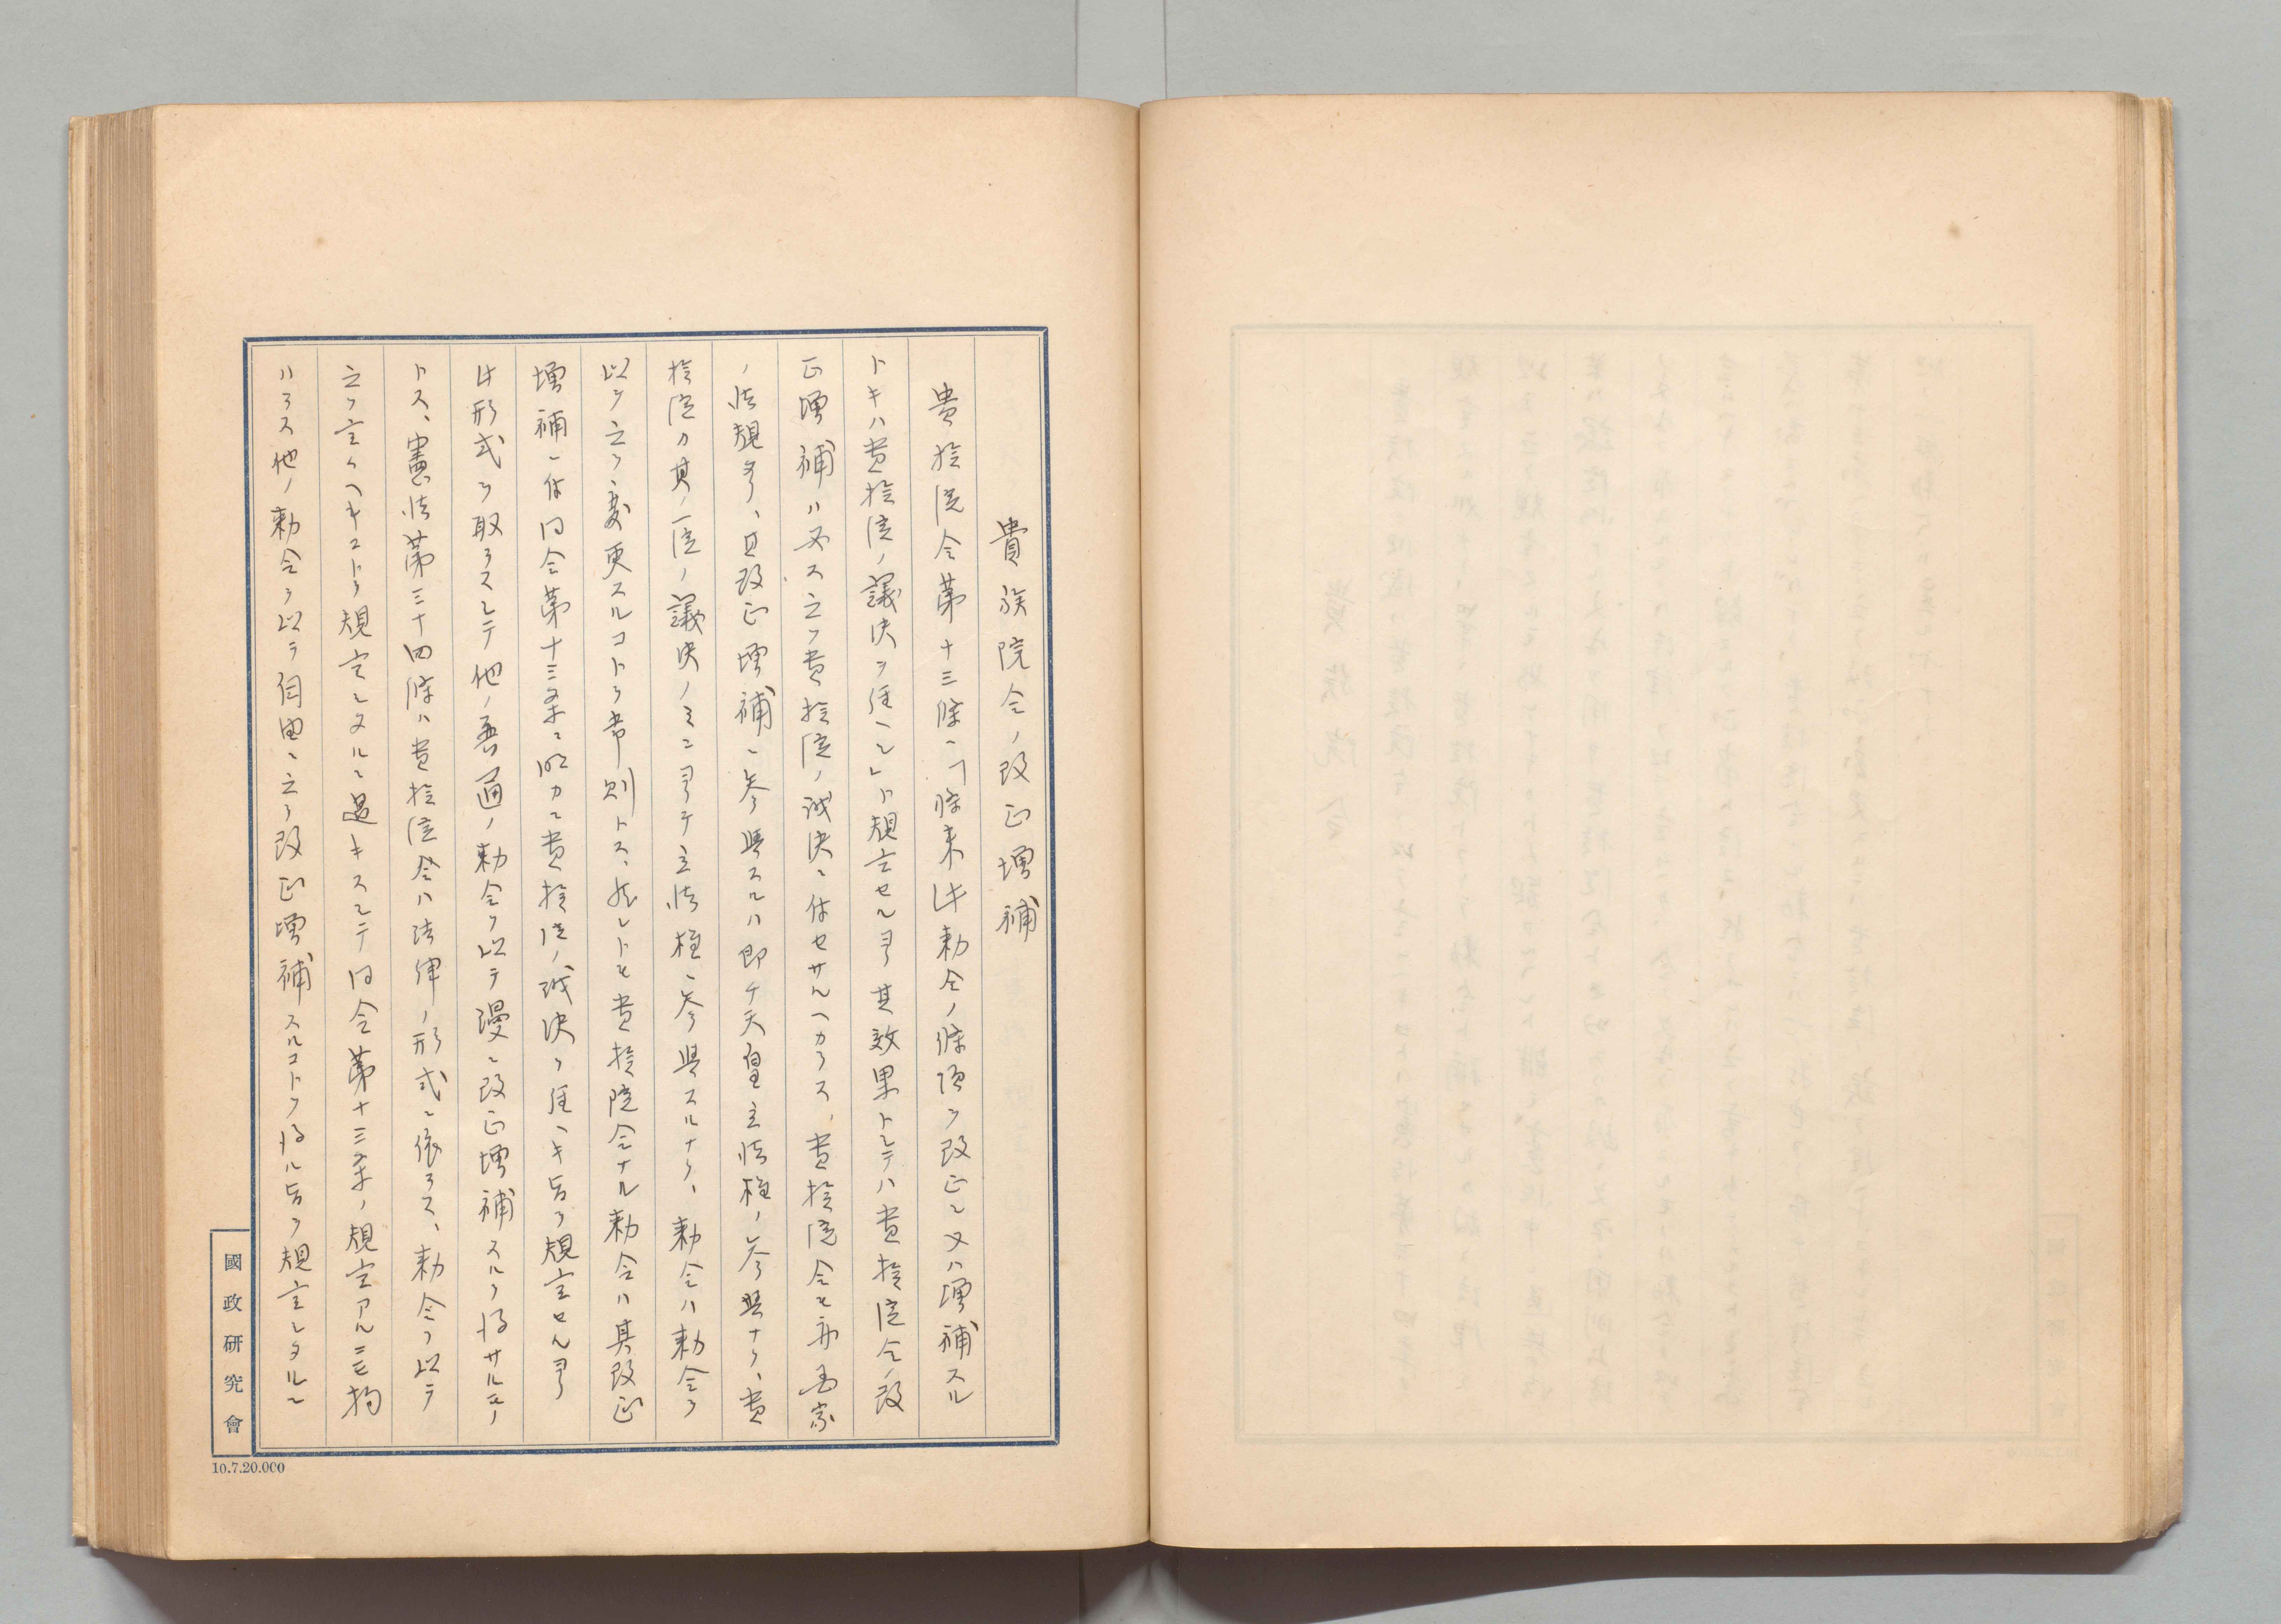 貴族院令ノ改正増補
貴族院令第十三條ニ「將来此勅令ノ條項ヲ改正シ又ハ増補スル
トキハ貴族院ノ議決ヲ経ヘシ」ト規定セルヲ以テ其效果トシテハ貴族院令ノ改
正増補ハ必ス之ヲ貴族院ノ議決ニ付セサルヘカラス、貴族院令モ亦国家
ノ法規多、其改正増補ニ参與スルハ即チ天皇立法権ノ参與ナリ、貴
族院カ其ノ一院ノ議決ノミニヨリテ立法権ニ参與スルナリ、勅令ハ勅令ヲ
以テ之ヲ変更スルコトヲ常則トス、然レトモ貴族院令ナル勅令ハ其改正
増補ニ付同令第十三条ニ明カニ貴族院ノ議決ヲ経ヘキ旨ヲ規定セルヲ
此形式ヲ取ラスシテ他ノ普通ノ勅令ヲ以テ漫ニ改正増補スルヲ得サルモノ
トス、憲法第三十四條ハ貴族院令ハ法律ノ形式ニ依ラス、勅令ヲ以テ
之ヲ定ムヘキコトヲ規定シタルニ過キスシテ同令第十三条ノ規定アルニモ拘
ハラス他ノ勅令ヲ以テ自由ニ之ヲ改正増補スルコトヲ得ル旨ヲ規定シタルニ
國政研究會
10.7.20.000